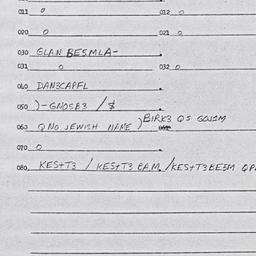 011 0 012 0
020 0 021 0
030 GLAN BESMLA-
031 0 032 0
040 DAN3CAPFL
050 )-GNOSB3 / $
060 Q NO JEWISH NAME ) BIRK3 QS GOJ1M
070 0
080 KES+T3 / KES+T3 BAM. / KES+T3BESM QP